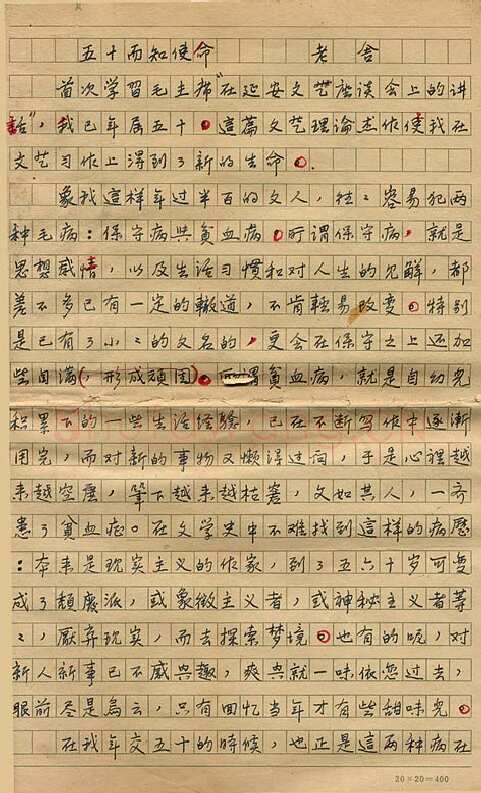 五十而知使命 老舍
首次学習毛主席"在延安文艺座谈会上的讲
話"，我已年届五十。這篇文艺理論杰作使我在
文艺习作上得到了新的生命。
象我這样年过半百的文人，往々容易犯两
种毛病：保守病與貧血病。所谓保守病，就是
思想感情，以及生活习慣和对人生的見解，都
差不多已有一定的轍道，不肯輕易改变。特别
是已有了小々的文名的，更会在保守之上还加
些自滿（，形成頑固）。所謂貧血病，就是自幼児
积累下的一些生活经驗，已在不断写作中逐漸
用完，而对新的事物又懒得过问，于是心裡越
来越空虚，筆下越来越枯窘，文如其人，一齐
患了貧血症。在文学史中不难找到這样的病歷
：本来是现实主义的作家，到了五六十岁可变
成了頽廢派，或象徵主义者，或神秘主义者等
々，厭弃现实，而去探索梦境。也有的呢，对
新人新事已不感兴趣，爽兴就一味依恋过去，
眼前尽是烏云，只有回忆当年才有些甜味児。
在我年交五十的時候，也正是這两种病在
20×20=400